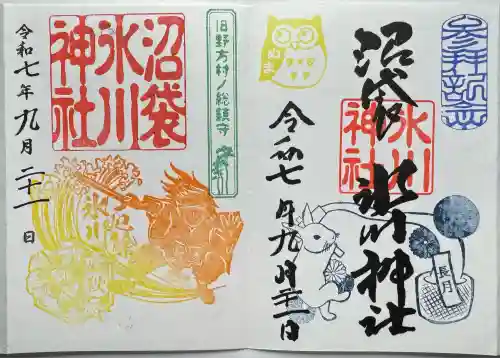 參拜記念
沼袋 氷川神社
氷川
神社
令和七年九月二十一日
長月
旧野方村ノ総鎮守
沼袋
氷川
神社
令和七年九月二十一日
氷川